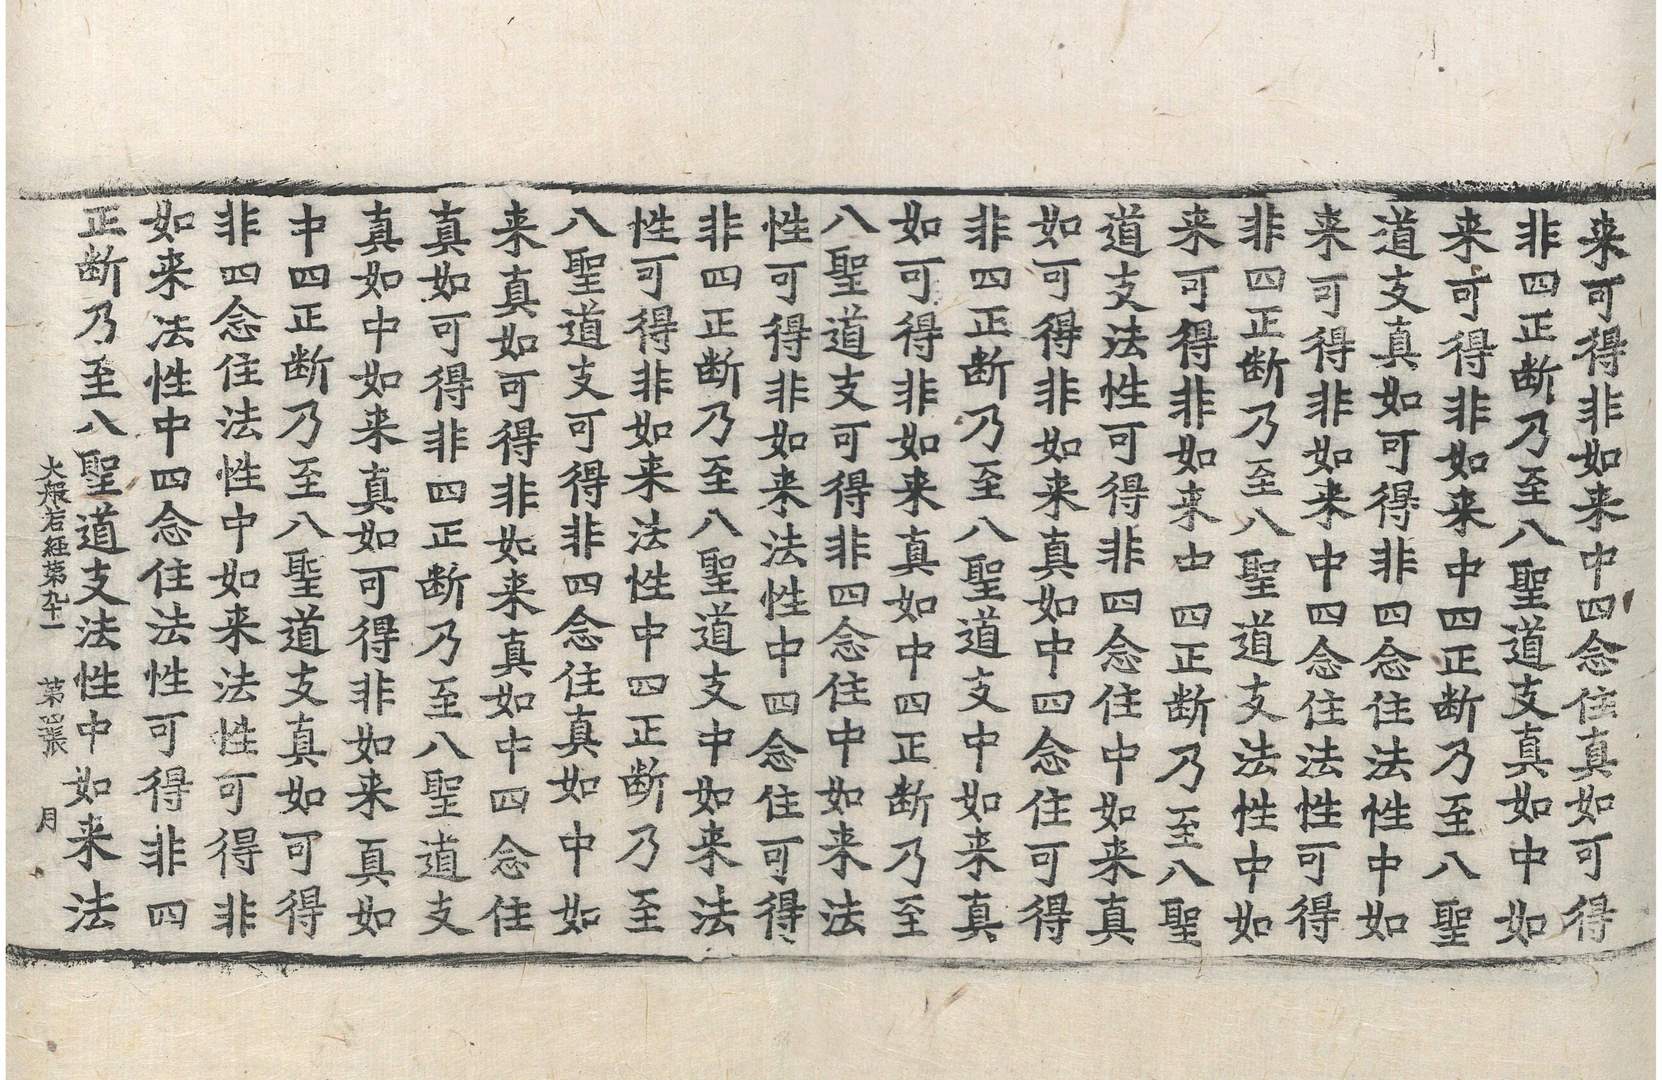 来可得非如来中四念住真如可得
非四正断乃至八聖道支真如中如
来可得非如来中四正断乃至八聖
道支真如可得非四念住法性中如
来可得非如来中四念住法性可得
非四正断乃至八聖道支法性中如
来可得非如来中四正断乃至八聖
道支法性可得非四念住中如来真
如可得非如来真如中四念住可得
非四正断乃至八聖道支中如来真
如可得非如来真如中四正断乃至
八聖道支可得非四念住中如来法
性可得非如来法性中四念住可得
非四正断乃至八聖道支中如来法
性可得非如来法性中四正断乃至
八聖道支可得非四念住真如中如
来真如可得非如来真如中四念住
真如可得非四正断乃至八聖道支
真如中如来真如可得非如来真如
中四正断乃至八聖道支真如可得
非四念住法性中如来法性可得非
如来法性中四念住法性可得非四
正断乃至八聖道支法性中如来法
大般若経第九十一 第張 月